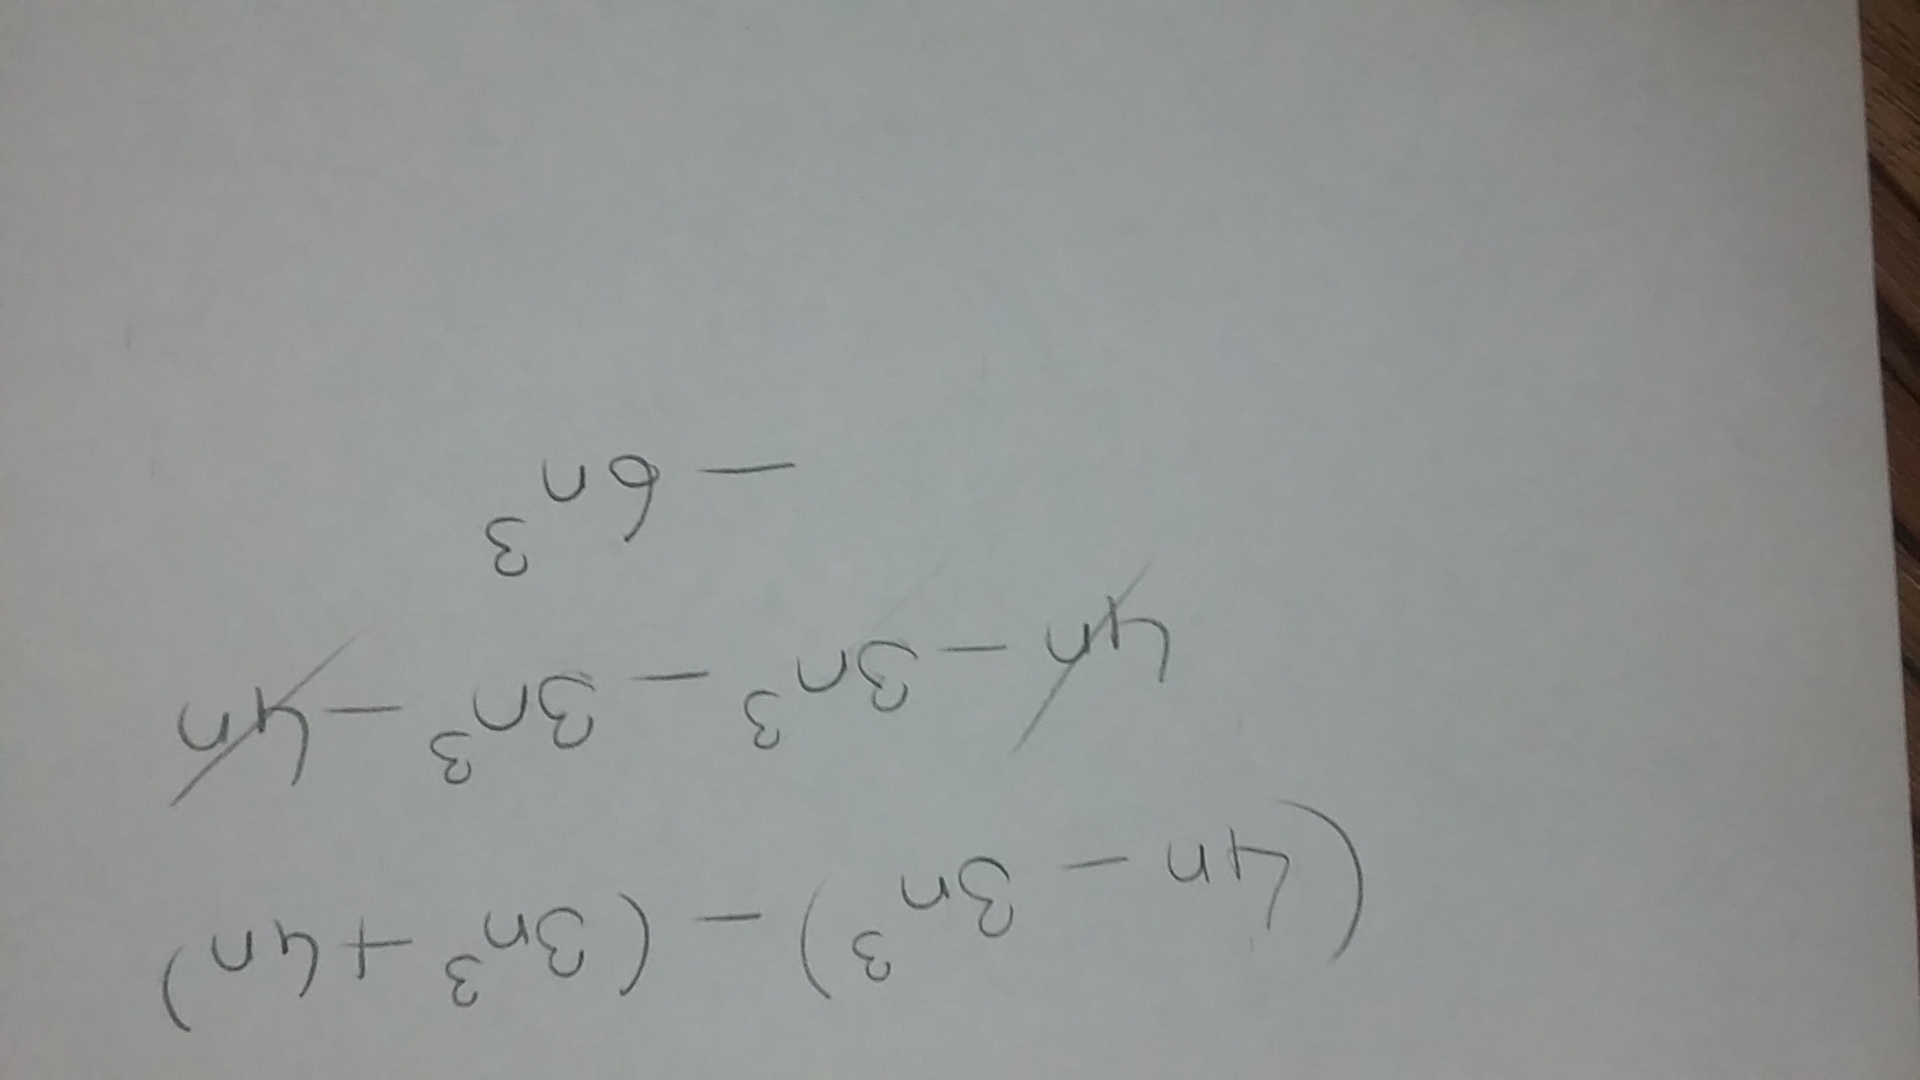 (4n - 3n³) - (3n³ + 4n)
4n - 3n³ - 3n³ - 4n
- 6n³